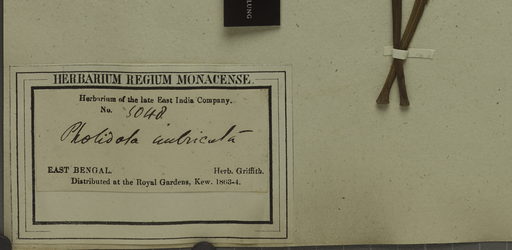 LUNG
HERBARIUM REGIUM MONACENSE.
Herbarium of the late East India Company.
No. 5048
Pholidota imbricata
EAST BENGAL. Herb. Griffith.
Distributed at the Royal Gardens, Kew. 1863-4.